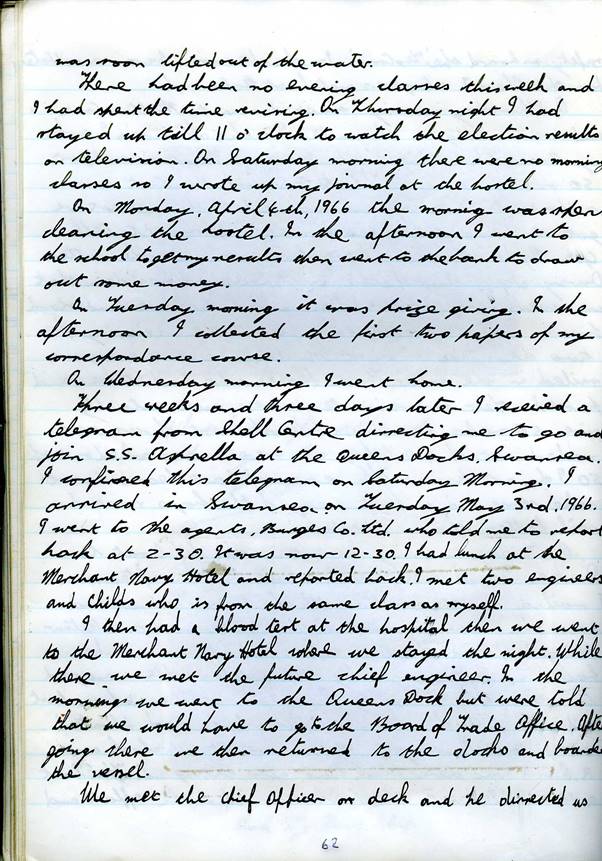 was soon lifted out of the water.
There had been no evening classes this week and
I had spent the time revising. On Thursday night I had
stayed up till 11 o'clock to watch the election results
on television. On Saturday morning there were no morning
classes so I wrote up my journal at the hostel.
On Monday, April 4th, 1966 the morning was spen
cleaning the hostel. In the afternoon I went to
the school to get my results then went to the bank to draw
out some money.
On Tuesday morning it was prize giving. In the
afternoon I collected the first two papers of my
correspondance course.
On Wednesday morning I went home.
Three weeks and three days later I receired a
telegram from Shell Centre dirrecting me to go and
join S.S. at the Queens Docks, Swansea.
I confirmed this telegram on Saturday Morning. I
arrived in Swansea on Tuesday May 3rd. 1966.
I went to the agents, Burges Co. Ltd. who told me to report
back at 2-30. It was now 12-30. I had lunch at the
Merchant Navy Hotel and reported back. I met two engineers
and Childs who is from the same class as myself.
I then had a blood test at the hospital then we went
to the Merchant Navy Hotel where we stayed the night. While
there we met the future chief engineer. In the
morning we went to the Queens Dock but were told
that we would have to go to the Board of Trade Office. Afte
going there we then returned to the docks and boarde
the vessel.
We met the Chief Officer on deck and he dirrected us
62